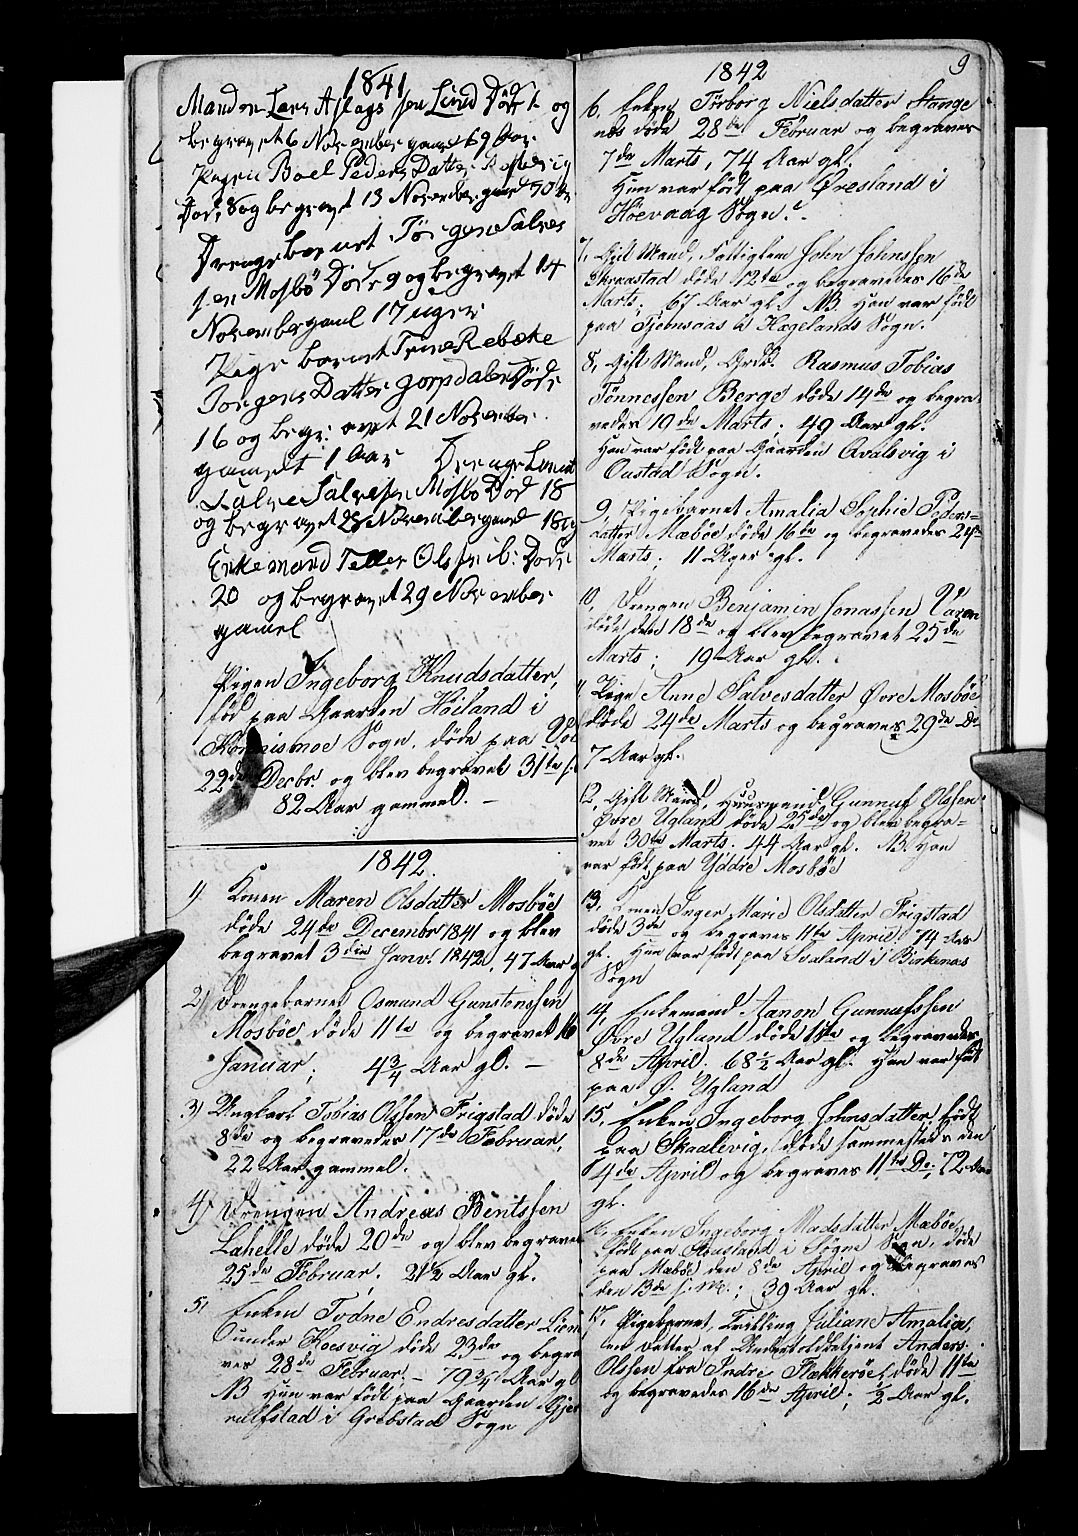 1841
Manden Lars Aslagssen Lund Død 1 og
begravet 6 November gamel 69 Aar
Pigen Boel Peders Datter
Død 8 og begravet 13 November gamel 70
Drengebarnet Jørgen Salves
sen Mosbö Døde 9 og begravet 14
November gamel 17 uger
Pige barnet Trine Rebeke
Jørgens Datter Død
16 og begravet 21 November
gamelt 1 Aar Drengebarnet
Salve Salvesen Mosbö Død 18
og begravet 28 November gamel 18
Enkemand Tellef Olssen Døde
20 og begravet 29 November
gamel
Pigen Ingeborg Knudsdatter,
fød paa Gaarden Höiland i
Sogn. døde paa
22de Decbr. og blev begravet 31te
82 Aar gammel. –
1842.
1) Konen Maren Olsdatter Mosböe
døde 24de Decembr 1841 og blev
begravet 3die Janv. 1842, 47 Aar g
2) Drengebarnet Osmund Gunstenssen
Mosböe døde 11te og begravet 16
Januar; 4 3/4 Aar gl. –
3) Ungkarl Tobias Olssen Frigstad døde
8de og begravedes 17de Februar,
22 Aar gammel.
4) Drengen Andreas Bentssen
Lahelle døde 20de og blev begravet
25de Februar. 2 1/2 Aar gl.
5) Enken Todne Endresdatter
under Kosvig døde 23de og begra
ves 28de Februar. – 79 3/4 Aar gl
NB Hun var født paa Gaarden Gjer
ulfstad i Grebstad Sogn
9
1842
6, Enken Törborg Nielsdatter Stange
næs døde 28de Februar og begraves
7de Marts, 74 Aar gl.
Hun var født paa Øresland i
Hoevaag Sogn.
7, Gift Mand, Fattiglem John Johnssen
Skraastad døde 12te og begravedes 16de
Marts; 67 Aar gl. NB. Han var født
paa Tjomsaas i Hægelands Sogn.
8, Gift Mand, Grdr. Rasmus Tobias
Tönnessen Berge døde 14de og begra
vedes 19de Marts. 49 Aar gl.
Han var født paa Gaarden Avalsvig i
Oustad Sogn.
9, Pigebarnet Amalia Sophie Peders-
datter Mæböe døde 16de og begravedes 24de
Marts; 11 Uger gl.
10, Drengen Benjamin Jonassen Varen
døde den 18de og blev begravet 25de
Marts; 19 Aar gl.
11, Pige Anne Salvesdatter Øvre Mosböe
døde 24de Marts og begraves 29de Do
7 Aar gl.
12, Gift Mand, Huusmand Gunnuf Olssen
Øvre Ugland døde 25de og blev begra-
vet 30te Marts. 44 Aar gl. NB. Han
var født paa Yddre Mosböe
13, Konen Inger Marie Olsdatter Frigstad
døde 3de og begraves 11te April. 74 Aar
gl. Hun var født paa i Birkenæs
Sogn
14, Enkemand Aanon Gunnufssen
Øvre Ugland døde 1ste og begravedes
8de April. 68 1/2 Aar gl. Han var født
paa Ø. Ugland
15, Enken Ingeborg Johnsdatter, født
paa Skaalevig, døde sammesteds den
4de April og begraves 11te Do. 72 Aar
gl.
16, Enken Ingeborg Madsdatter Mæböe
født paa i Søgne Sogn, døde
paa Mæböe den 8de April og begraves
den 13de s. M.; 39 Aar gl.
17, Pigebarnet, Tvilling Juliane Amalia,
en datter af Undertoldbetjent Anders
Olssen fra Indre Flekkeröe, døde 11te
og begravedes 16de April; 1/2 Aar gl.